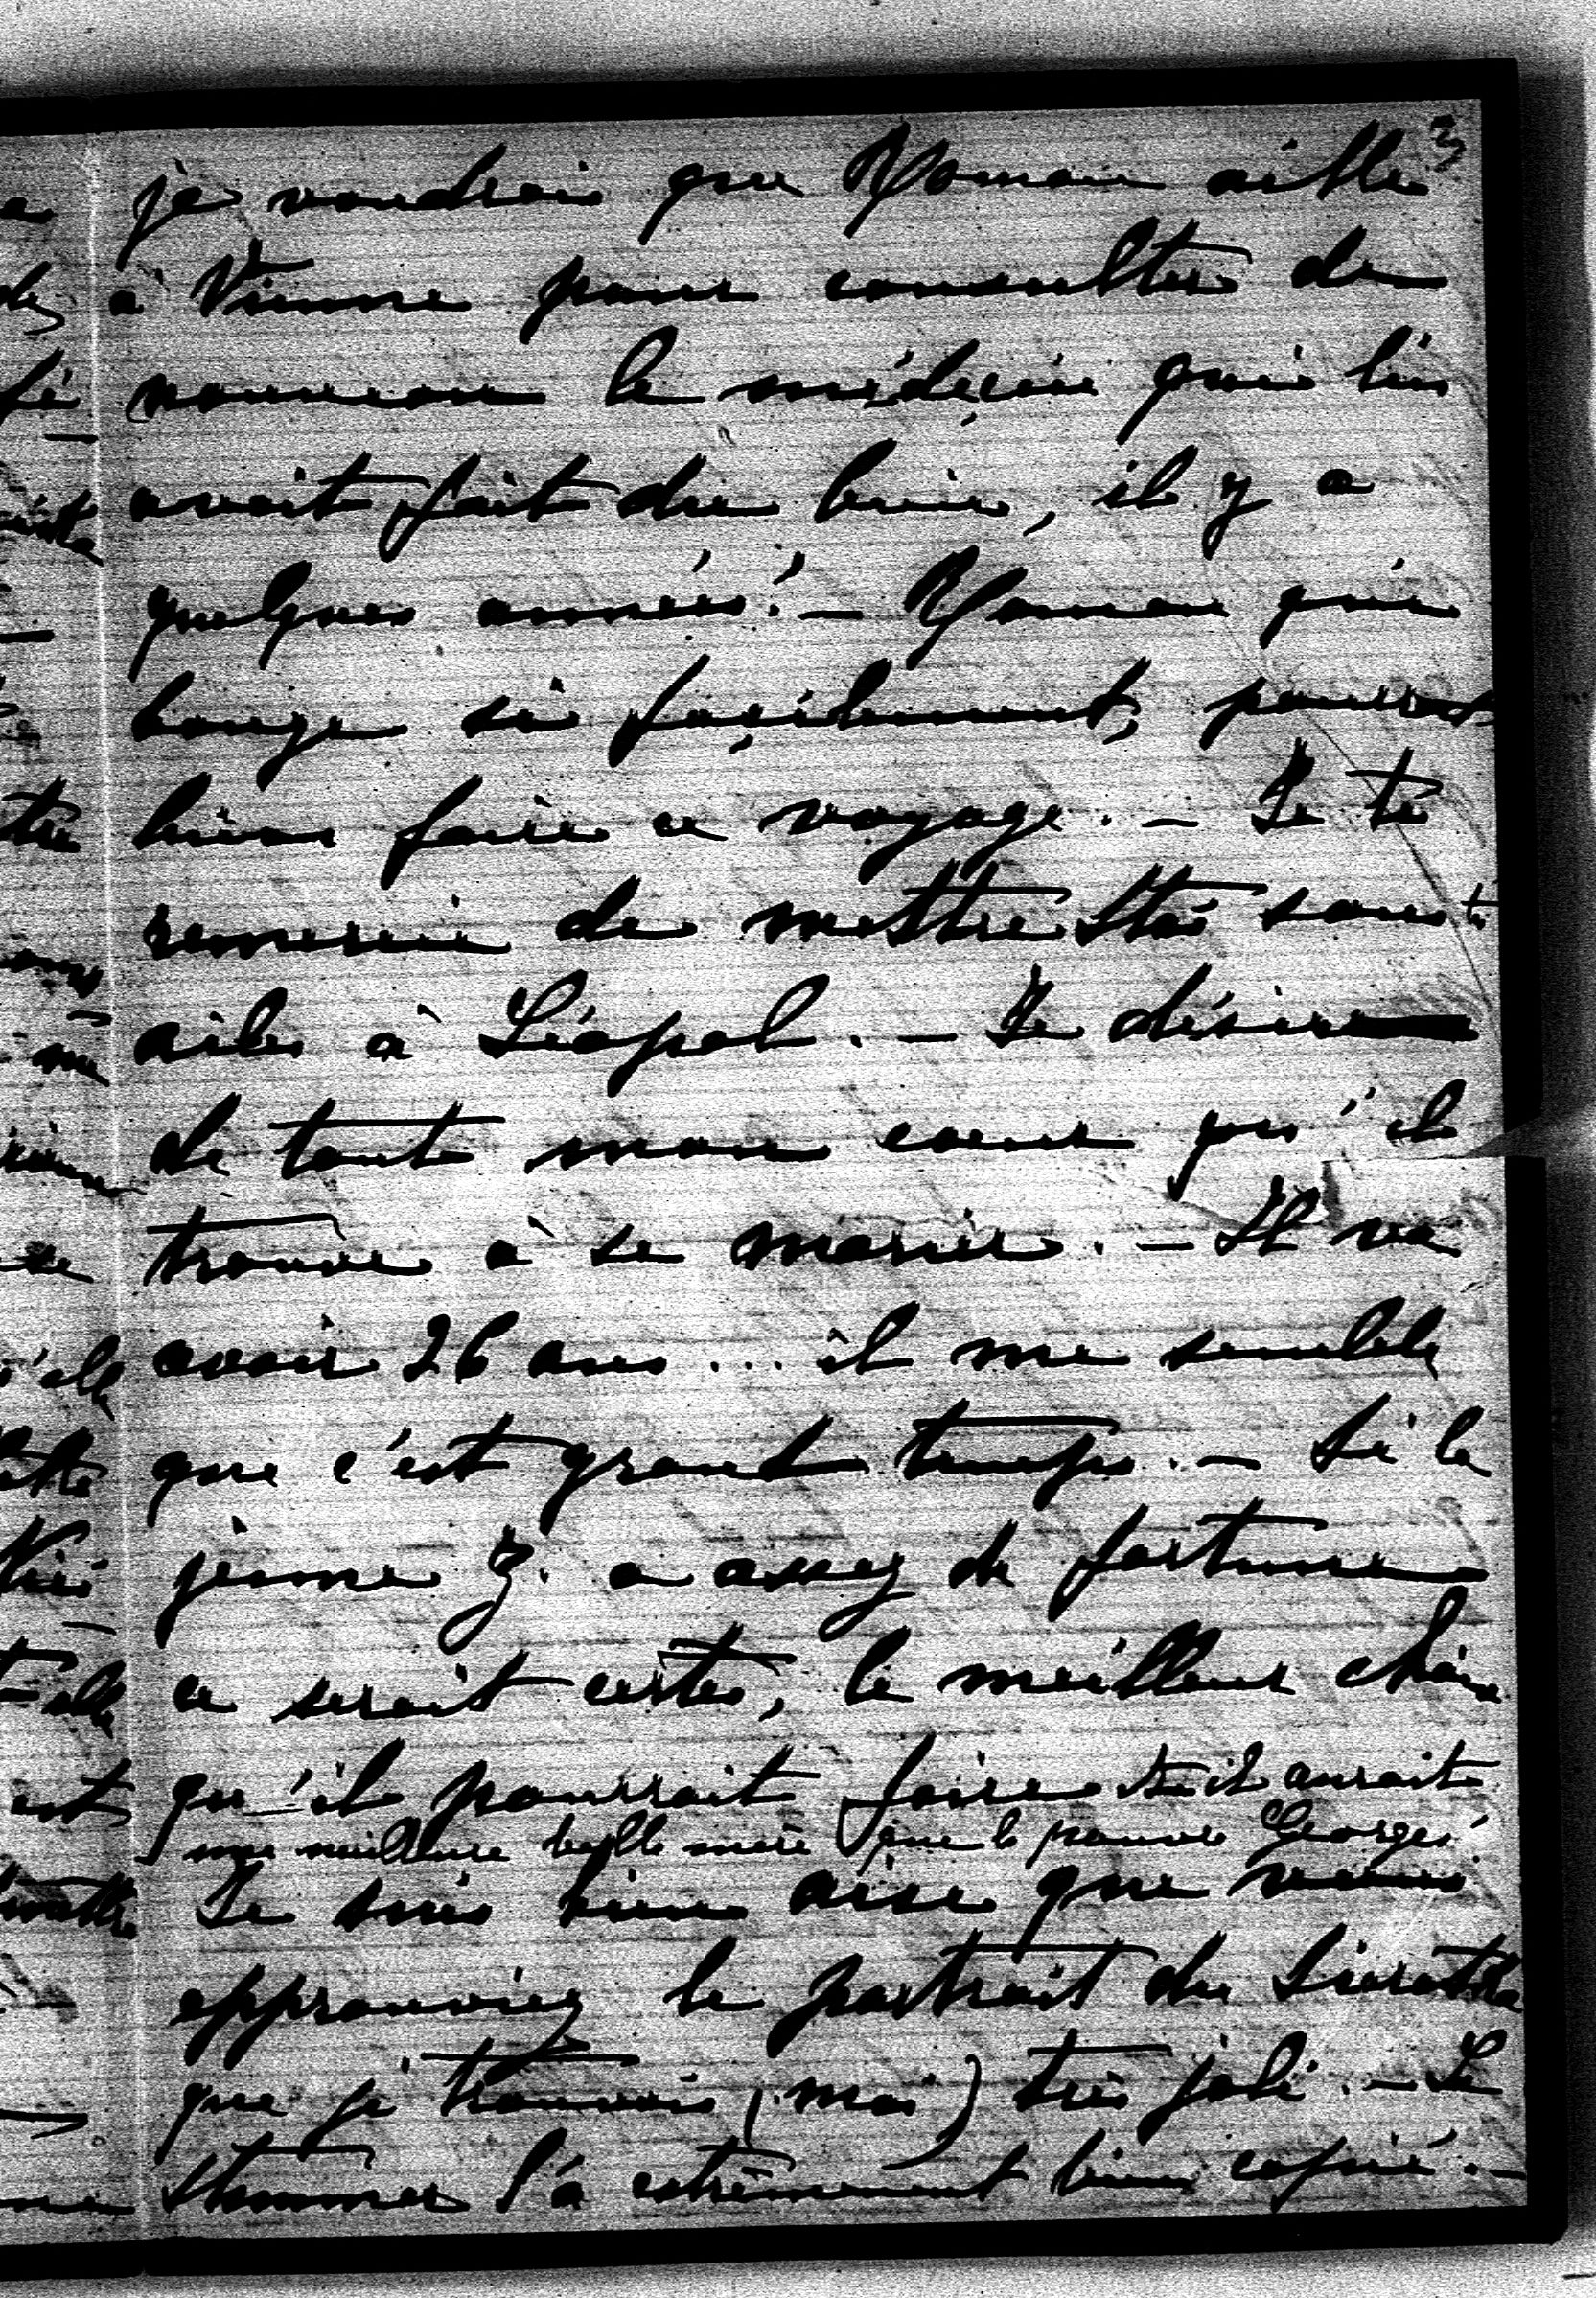 3
je voudrais que Maman aille
à Vienne pour consulter de
nouveau le médecin qui lui
avait fait du bien, il y a
quelques années! — Maman qui
bouge si façilement, pourrait
bien faire ce voyage. — Je te
remercie de mettre Stás sous tes
ailes à Léopol. — Je désire
de tout mon coeur qu'il
trouve à se marier. — Il va
avoir 26 ans... il me semble
que c'est grand temps. — Si la
jeune Z. a assez de fortune
ce serait certes, le meilleur choix
qu'il pourrait faire et il aurait
une meilleure belle mère que le pauvre Georges!
Je suis bien aise que vous
approuviez le portrait du
que je trouvais (moi) très joli. — Le
l'a extrêmement bien copié. —